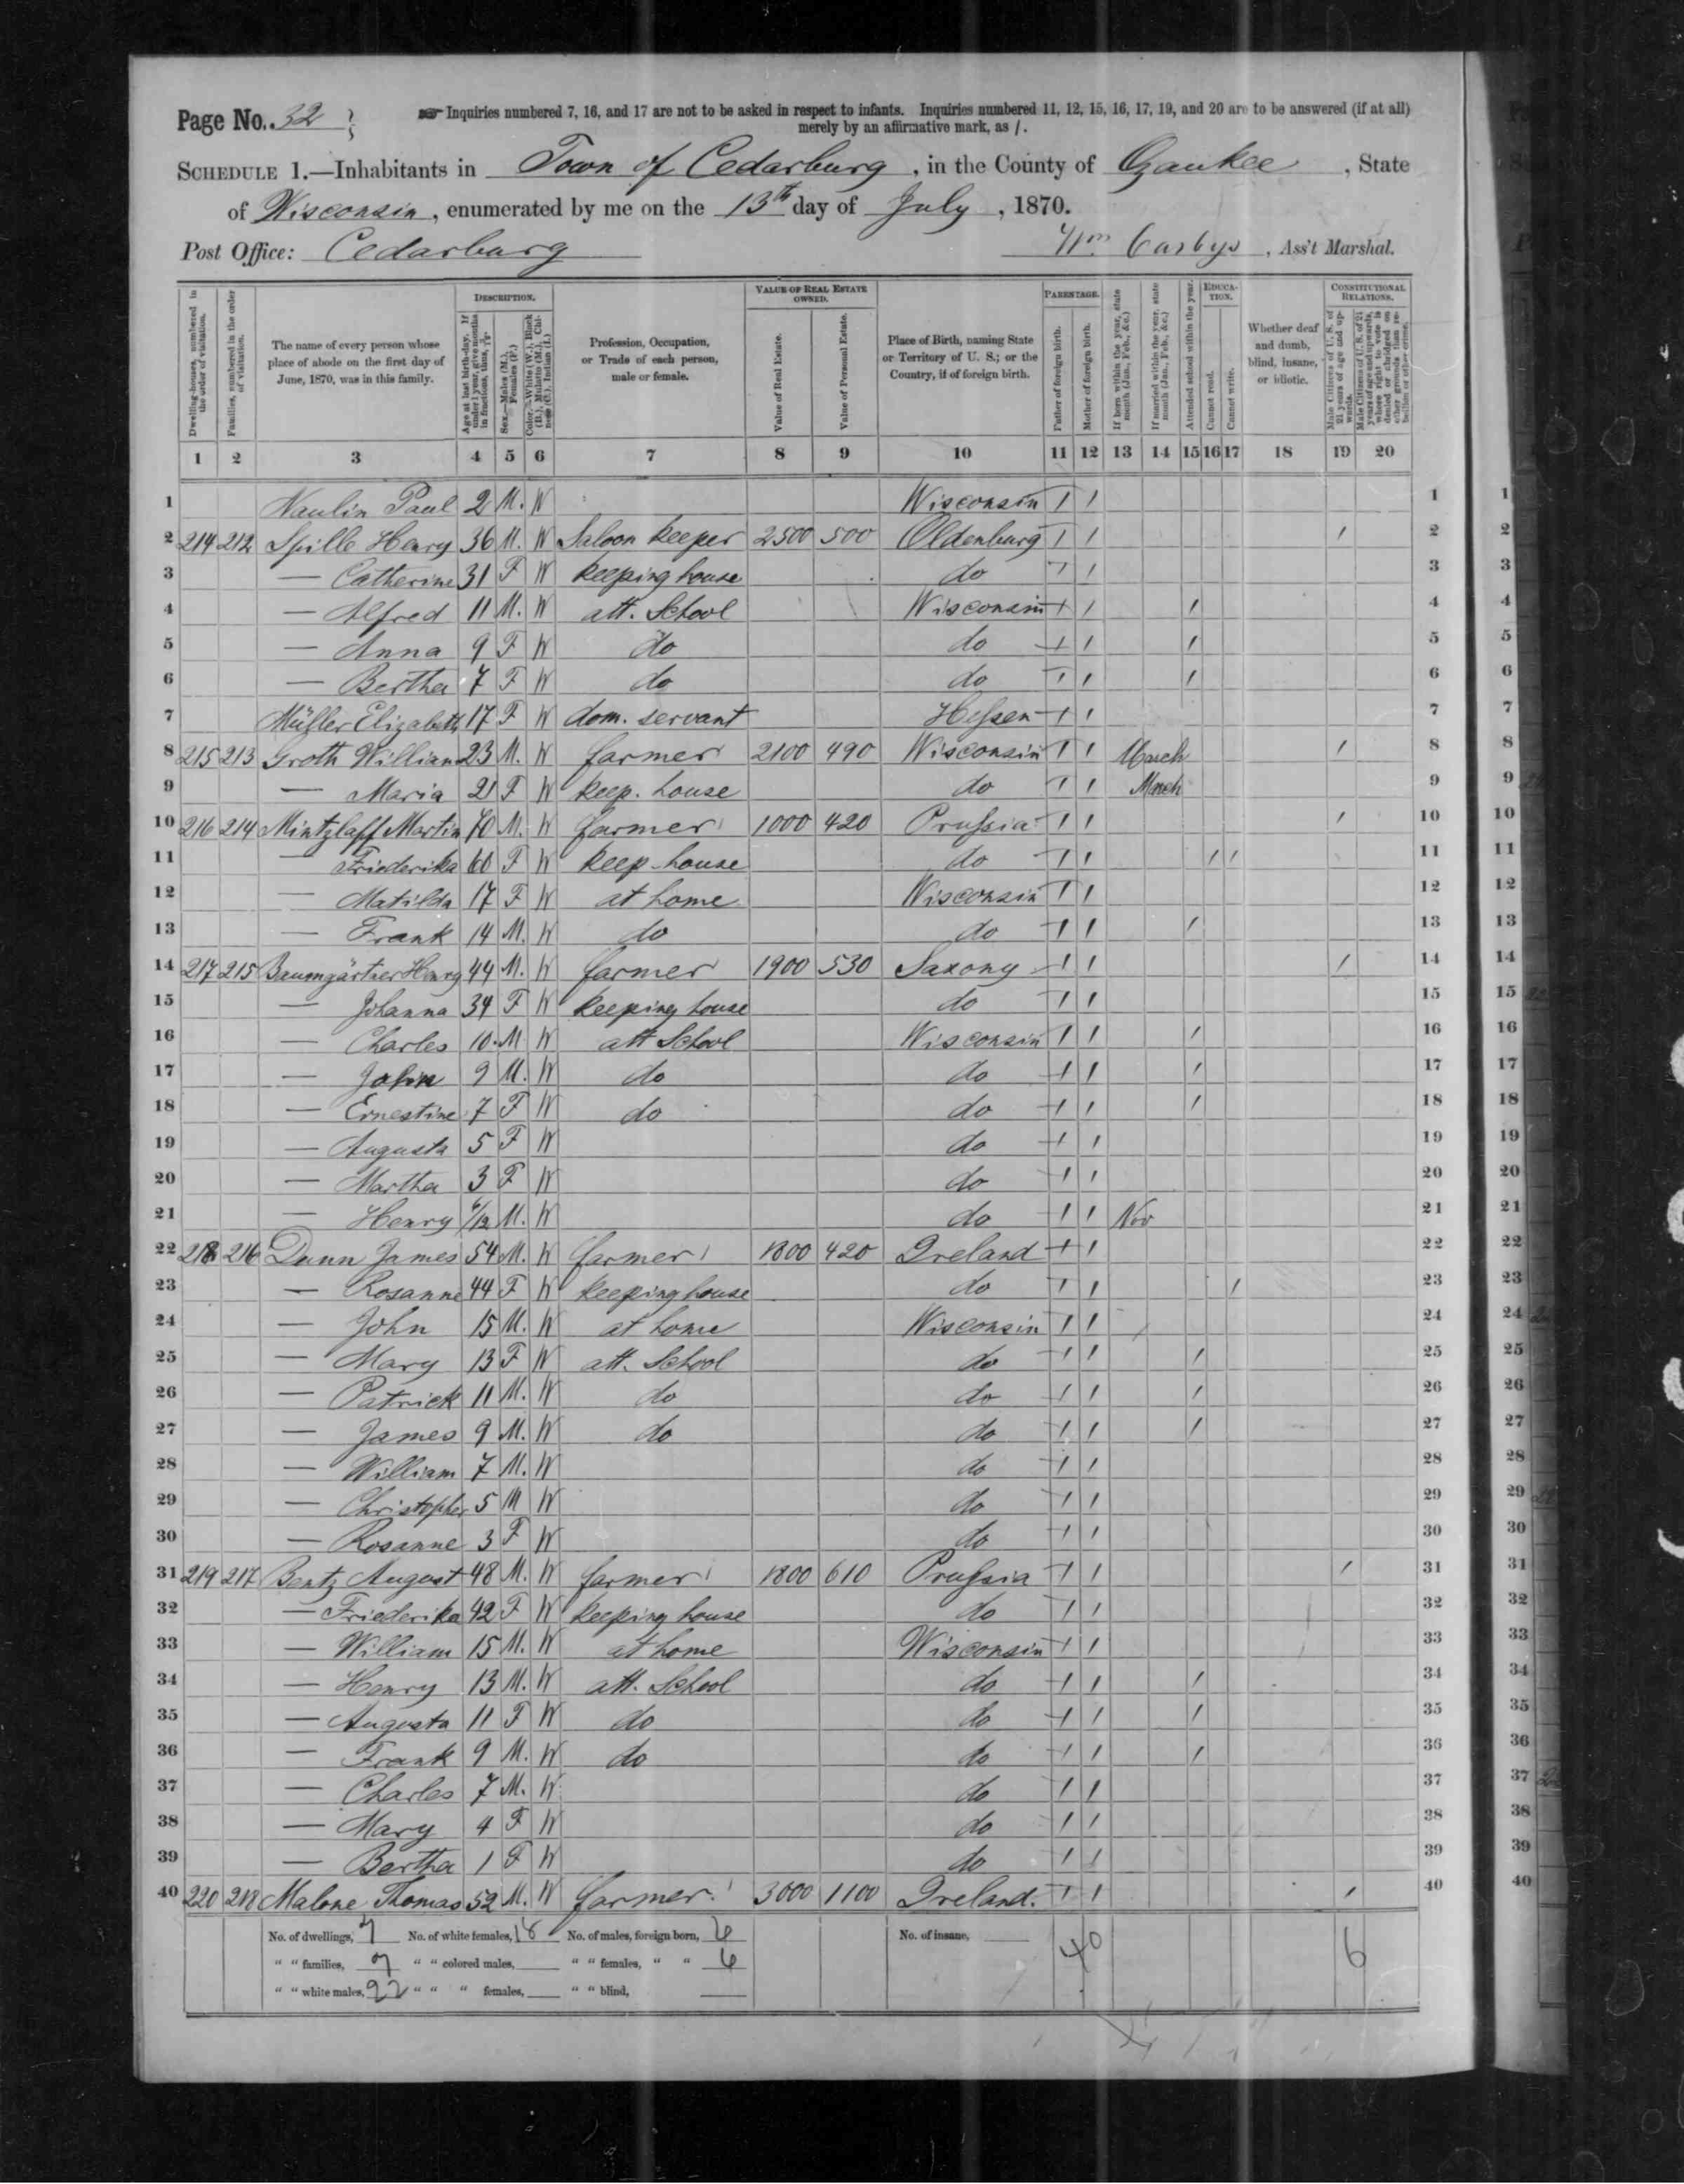 Page No. 32
Inquiries numbered 7, 16, and 17 are not to be asked in respect to infants. Inquiries numbered 11, 12, 15, 16, 17, 19, and 20 are to be answered (if at all)
merely by an affirmative mark, as /.
SCHEDULE 1.—Inhabitants in Town of Cedarburg, in the County of Ozaukee, State
of Wisconsin, enumerated by me on the 13th day of July, 1870.
Post Office: Cedarburg Wm. , Ass't Marshal.
Dwelling-houses, numbered in the order of visitation.
Families, numbered in the order of visitation.
The name of every person whose place of abode on the first day of June, 1870, was in this family.
DESCRIPTION.
Age at last birth-day. If under 1 year, give months in fractions, thus, 3/12.
Sex.—Males (M.), Females (F.)
Color.—White (W.), Black (B.), Mulatto (M.), Chinese (C.), Indian (I.)
Profession, Occupation, or Trade of each person, male or female.
VALUE OF REAL ESTATE OWNED.
Value of Real Estate.
Value of Personal Estate.
Place of Birth, naming State or Territory of U. S.; or the Country, if of foreign birth.
PARENTAGE.
Father of foreign birth.
Mother of foreign birth.
If born within the year, state month (Jan., Feb., &c.)
If married within the year, state month (Jan., Feb., &c.)
Attended school within the year.
EDUCATION.
Cannot read.
Cannot write.
Whether deaf and dumb, blind, insane, or idiotic.
CONSTITUTIONAL RELATIONS.
Male Citizens of U. S. of 21 years of age and upwards.
Male Citizens of U. S. of 21 years of age and upwards, whose right to vote is denied or abridged on other grounds than rebellion or other crime.
1 2 3 4 5 6 7 8 9 10 11 12 13 14 15 16 17 18 19 20
1 Naulin Paul 2 M. W Wisconsin / / 1
2 214 212 Spille Henry 36 M. W Saloon keeper 2500 500 Oldenburg / / / 2
3 — Catherine 31 F W keeping house do / / 3
4 — Alfred 11 M. W att. School Wisconsin / / / 4
5 — Anna 9 F W do do / / / 5
6 — Bertha 7 F W do do / / / 6
7 Müller Elizabeth 17 F W dom. servant Hessen / / 7
8 215 213 Groth William 23 M. W farmer 2100 490 Wisconsin / / March / 8
9 — Maria 21 F W keep. house do / / March 9
10 216 214 Mintzlaff Martin 70 M. W farmer 1000 420 Prussia / / / 10
11 — Friederika 60 F W keep. house do / / / / 11
12 — Matilda 17 F W at home Wisconsin / / 12
13 — Frank 14 M. W do do / / / 13
14 217 215 Baumgärtner Henry 44 M. W farmer 1900 530 Saxony / / / 14
15 — Johanna 34 F W keeping house do / / 15
16 — Charles 10 M W att School Wisconsin / / / 16
17 — John 9 M. W do do / / / 17
18 — Ernestine 7 F W do do / / / 18
19 — Augusta 5 F W do / / 19
20 — Martha 3 F W do / / 20
21 — Henry /12 M. W do / / Nov 21
22 218 216 Dunn James 54 M. W farmer 1800 420 Ireland / / 22
23 — Rosanne 44 F W keeping house do / / / 23
24 — John 15 M. W at home Wisconsin / / 24
25 — Mary 13 F W att. School do / / / 25
26 — Patrick 11 M. W do do / / / 26
27 — James 9 M. W do do / / / 27
28 — William 7 M. W do / / 28
29 — Christopher 5 M W do / / 29
30 — Rosanne 3 F W do / / 30
31 219 217 Bentz August 48 M. W farmer 1800 610 Prussia / / / 31
32 — Friederika 42 F W keeping house do / / 32
33 — William 15 M. W at home Wisconsin / / 33
34 — Henry 13 M. W att. School do / / / 34
35 — Augusta 11 F W do do / / / 35
36 — Frank 9 M. W do do / / / 36
37 — Charles 7 M. W do / / 37
38 — Mary 4 F W do / / 38
39 — Bertha 1 F W do / / 39
40 220 218 Malone Thomas 52 M. W farmer 3000 1100 Ireland. / / / 40
No. of dwellings, 7 No. of white females, 18 No. of males, foreign born, 6 No. of insane, 40 6
" " families, 7 " " colored males, " " females, " " 6
" " white males, 22 " " " females, " " blind,